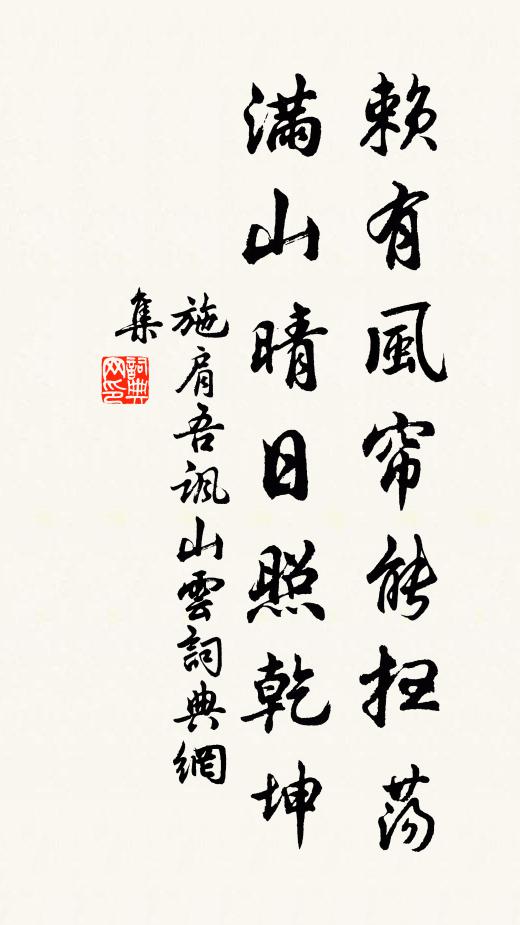 賴有風帘能扫荡
滿山晴日照乾坤
施肩吾諷山雲詞典網
集
詞典网印